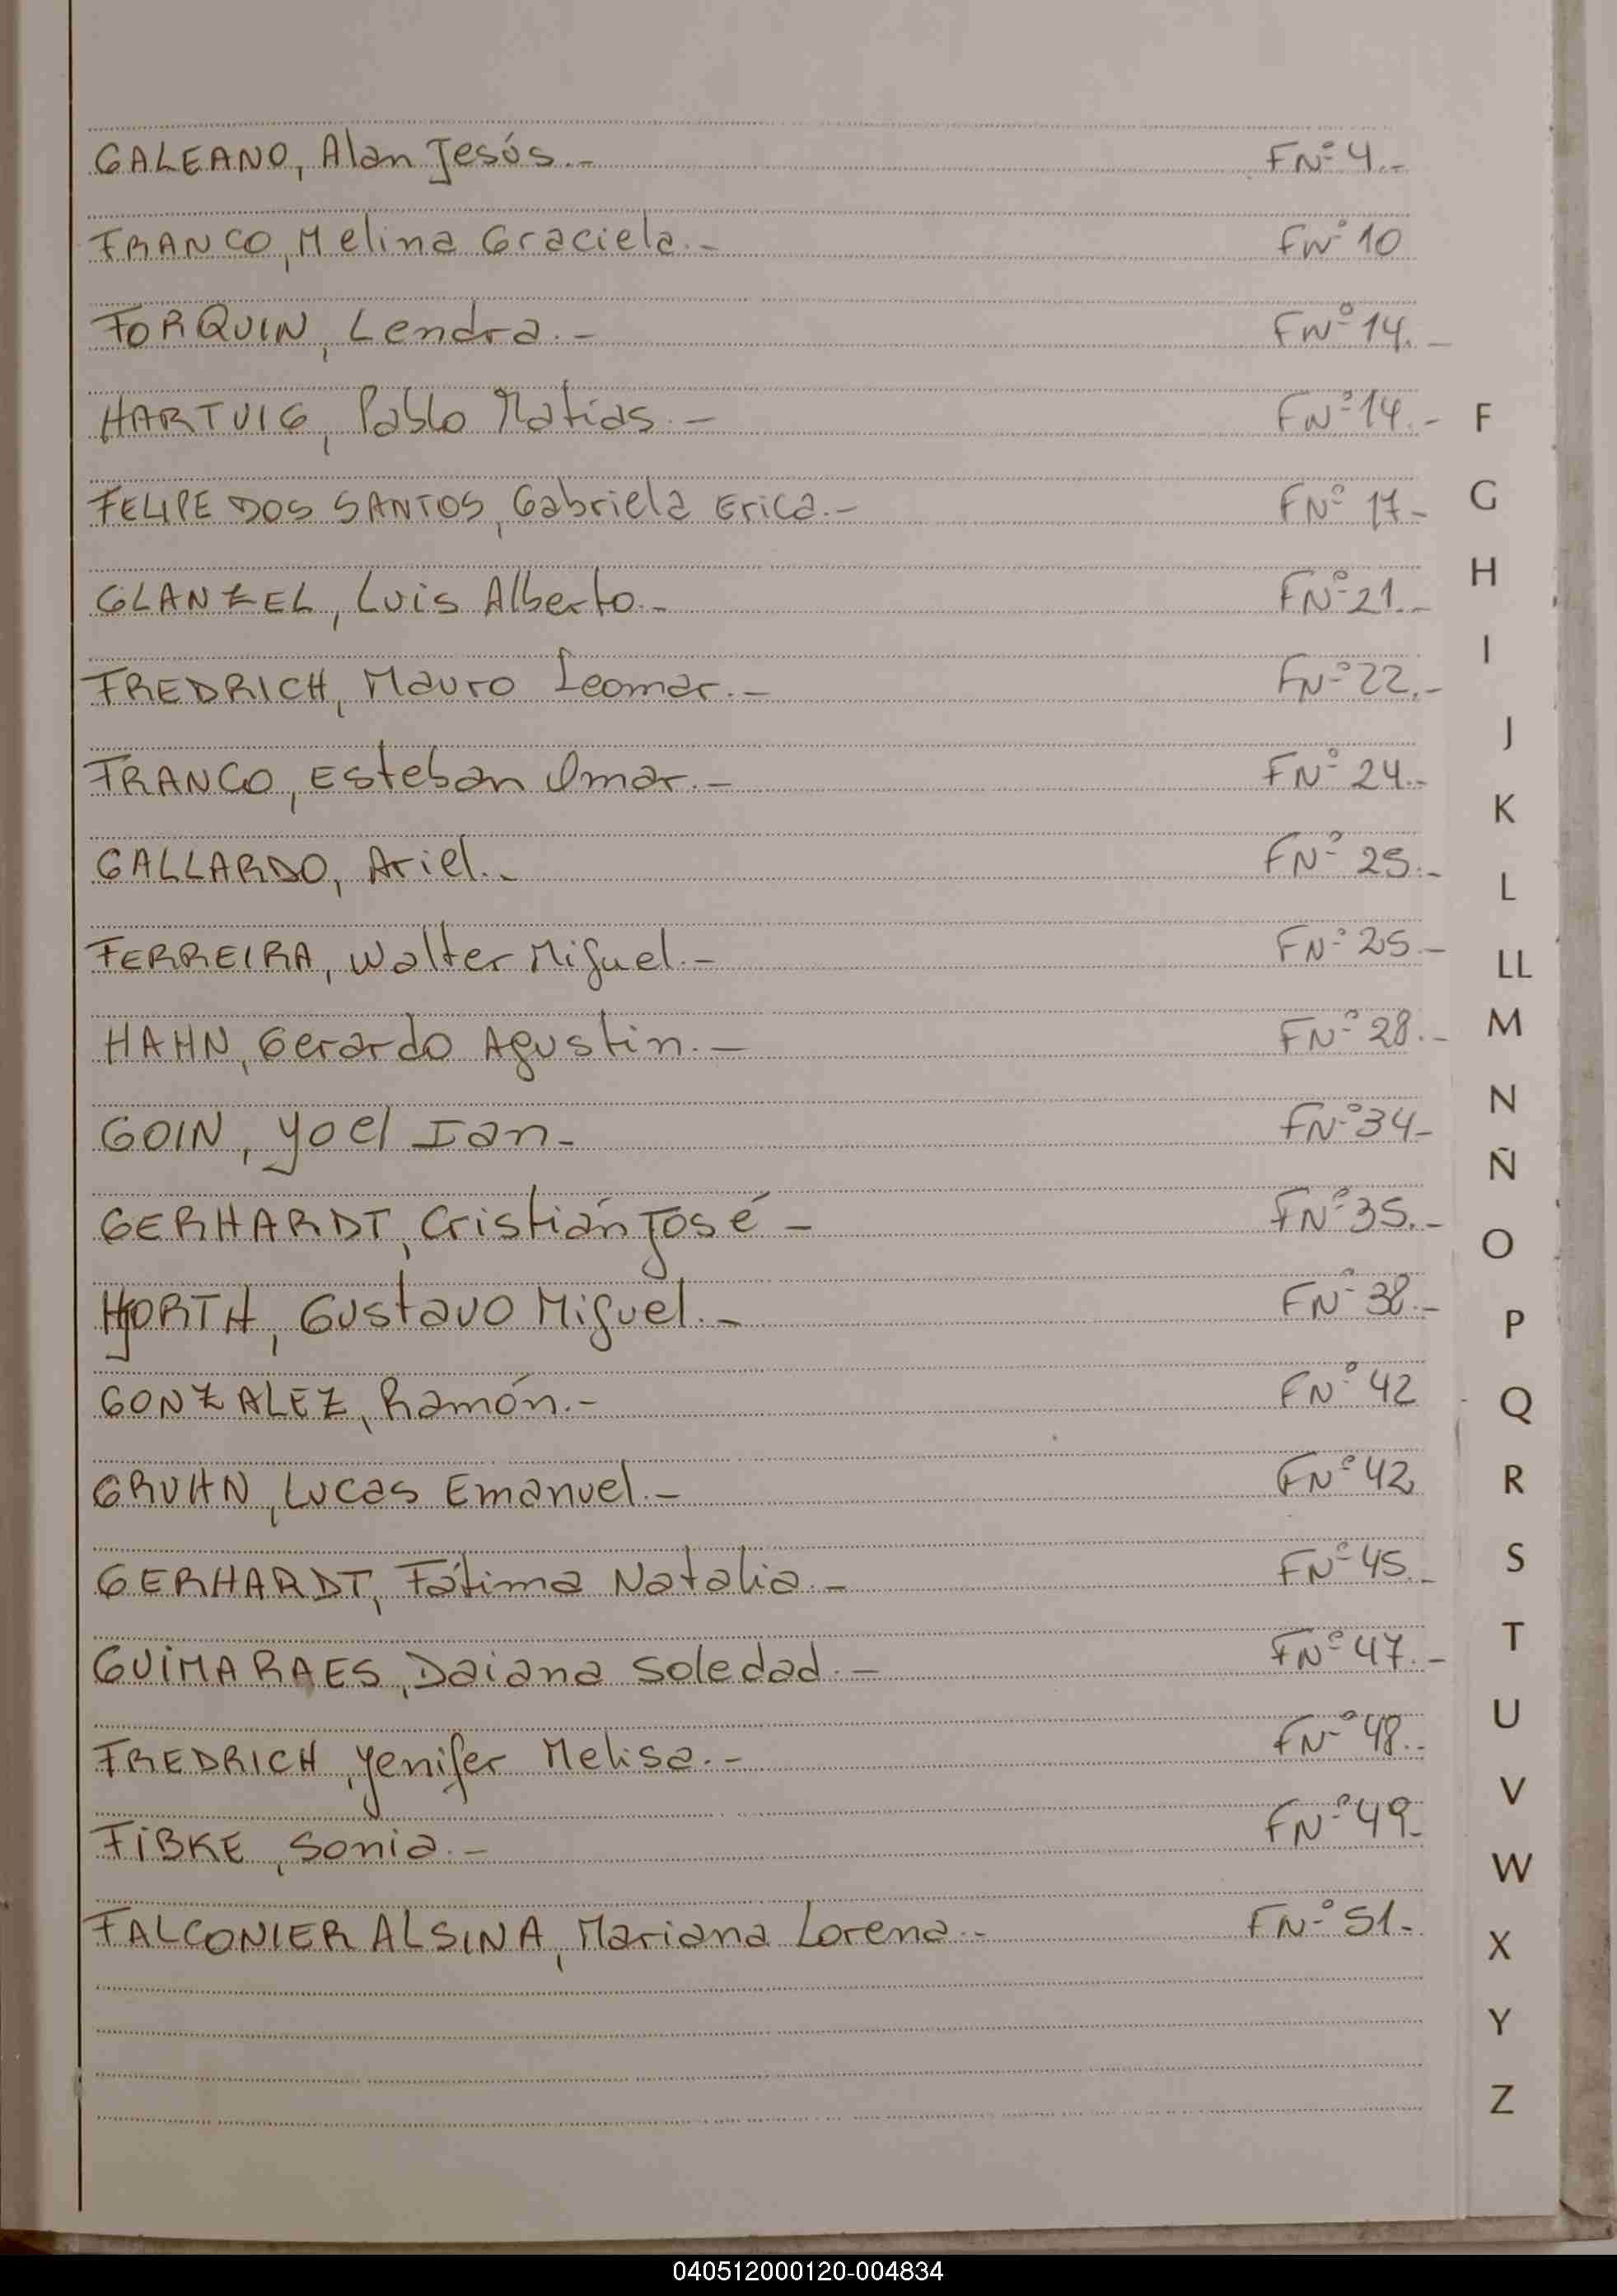 GALEANO, Alan Jesús.- FNº 4.-
FRANCO, Melina Graciela.- FNº 10
FORQUIN, Lendra.- FNº 14.-
HARTVIG, Pablo Matias.- FNº 14.-
FELIPE DOS SANTOS, Gabriela Erica.- FNº 17-
GLANZEL, Luis Alberto.- FNº 21.-
FREDRICH, Mauro Leomar.- FNº 22.-
FRANCO, Esteban Omar.- FNº 24.-
GALLARDO, Ariel.- FNº 25.-
FERREIRA, Walter Miguel.- FNº 25.-
HAHN, Gerardo Agustin.- FNº 28.-
GOIN, Yoel Ian.- FNº 34-
GERHARDT, Cristián José - FNº 35.-
HJORTH, Gustavo Miguel.- FNº 38.-
GONZALEZ, Ramón.- FNº 42
GRUHN, Lucas Emanuel.- FNº 42
GERHARDT, Fátima Natalia.- FNº 45.-
GUIMARAES, Daiana Soledad.- FNº 47.-
FREDRICH, Yenifer Melisa.- FNº 48.-
FIBKE, Sonia.- FNº 49-
FALCONIER ALSINA, Mariana Lorena.- FNº 51.-
F
G
H
I
J
K
L
LL
M
N
Ñ
O
P
Q
R
S
T
U
V
W
X
Y
Z
040512000120-004834